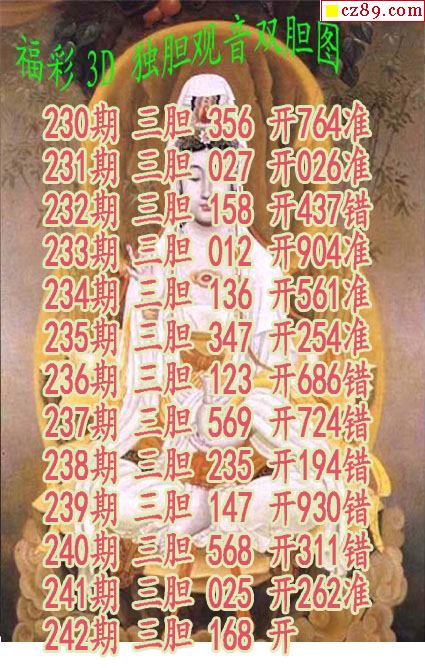 cz89.com
福彩 3D 独胆观音双胆图
230期 三胆 356 开764准
231期 三胆 027 开026准
232期 三胆 158 开437错
233期 三胆 012 开904准
234期 三胆 136 开561准
235期 三胆 347 开254准
236期 三胆 123 开686错
237期 三胆 569 开724错
238期 三胆 235 开194错
239期 三胆 147 开930错
240期 三胆 568 开311错
241期 三胆 025 开262准
242期 三胆 168 开